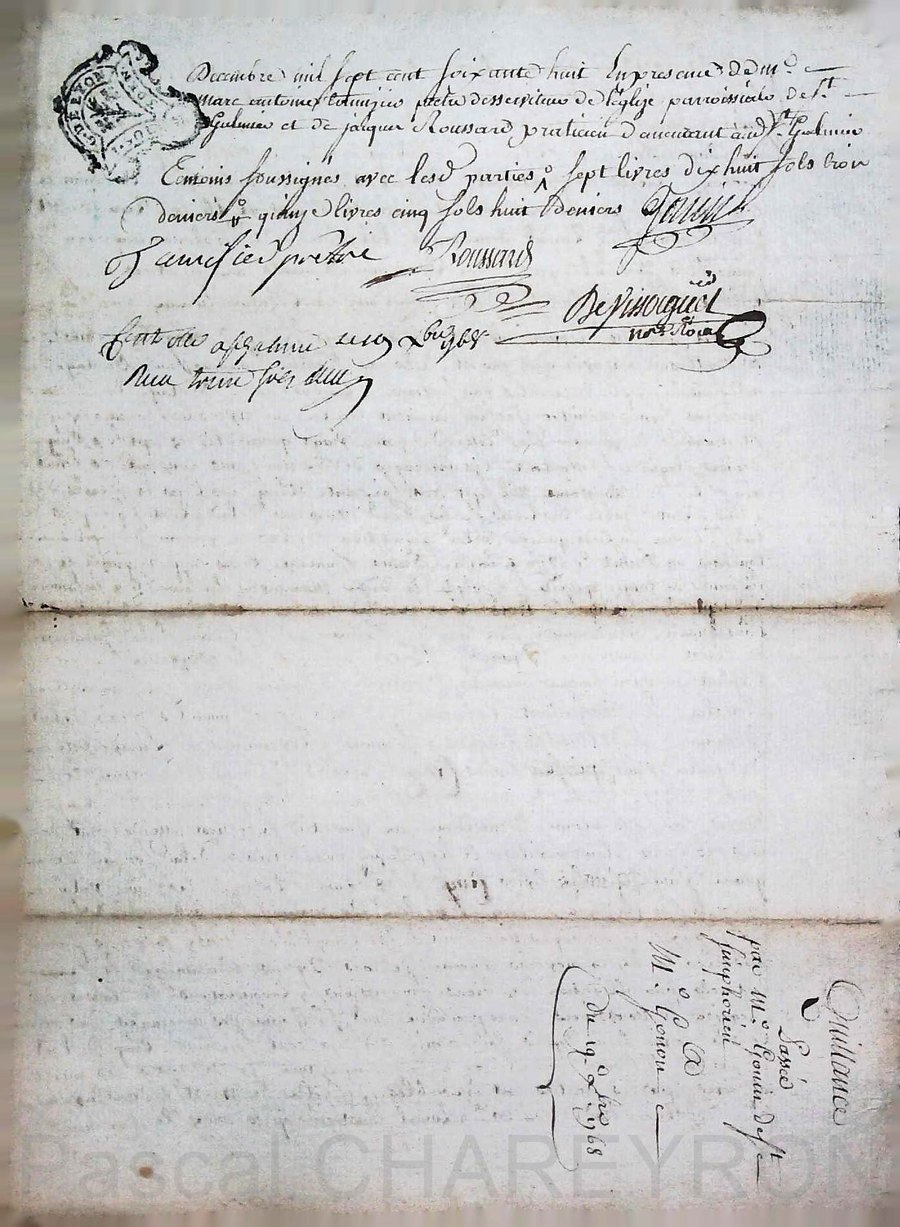 Decembre mil sept cent soixante huit En presence de m.e
marc antoine pretre desserviteur de l'Eglise parroissiale de St
Galmier et de jacque Roussard praticien demeurant aud. St Galmier
Temoins soussignes avec lesd. parties sept livres dix huit sols trois
deniers quinze livres cinq sols huit deniers Gonin
pretre Roussard
not. Roial
St galmier le 19 Xbre 1768
Recu treize sols
Quittance
Passée
par M.e Gonin de St
Simphorien
A
M.e Gonon
du 19 Xbre 1768
Pascal CHAREYRON